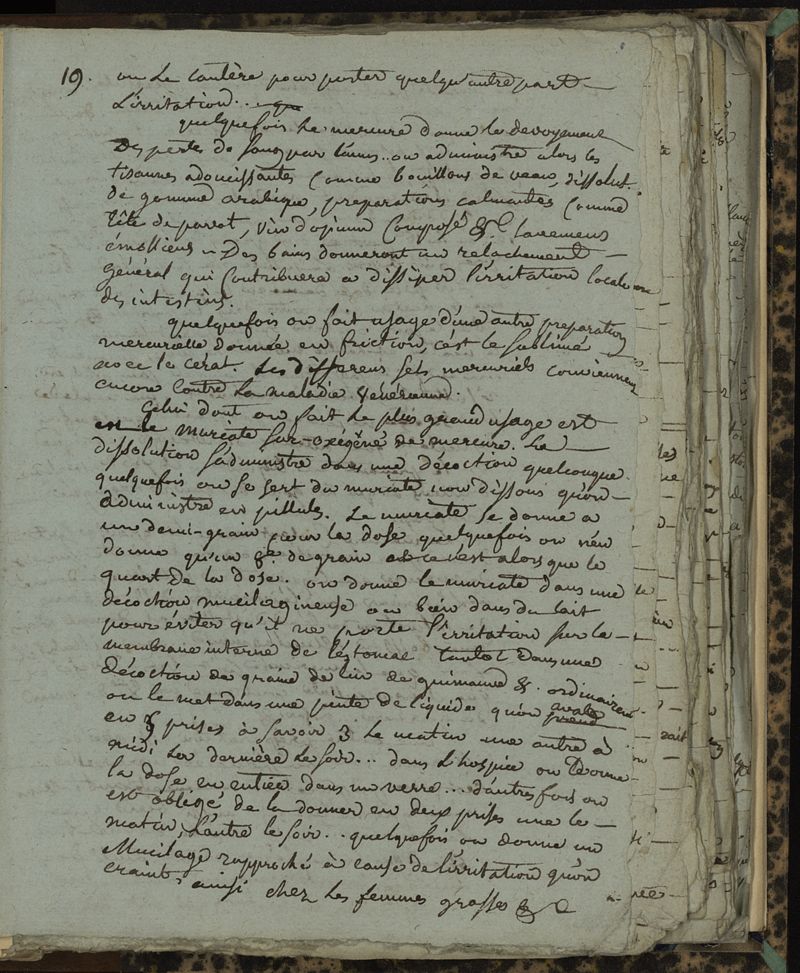 19. ou le cautère pour porter quelqu'autre part
L'irritation..
quelquefois le mercure donne le devoyement
Des pertes de sang par l'anus.. on administre alors les
tisannes adoucissantes Comme bouillons de veau, dissolut.
de gomme arabique, preparations calmantes Comme
tête de pavot, vin d'opium Composé &c. lavemens
émolliens .. Des bains donneront un relachement
général qui Contribuera a dissiper l'irritation locale
des intestins.
quelquefois on fait usage d'une autre preparation
mercurielle donnée en friction, c'est le sublimé
avec le cérat. Les differens sels mercuriels conviennent
encore Contre la maladie vénérienne.
Celui dont on fait le plus grand usage est
est le muriate sur-oxigéné de mercure. La
dissolution s'administre dans une décoction quelconque.
quelquefois on se sert du muriate non dissous qu'on
administre en pillules. Le muriate se donne a
un demi-grain pour la dose quelquefois on n'en
donne qu'un de grain c'est alors que le
quart de la dose. on donne le muriate dans une
décoction mucilagineuse ou bien dans du lait
pour éviter qu'il ne porte l'irritation sur la
membrane interne de l'estomac tantot dans une
décoction de graine de lin de guimauve &. ordinairem
on le met dans une pinte de liquide qu'on avale prend
en 3 prises à savoir 3 le matin une autre à
midi La dernière le soir... dans L'hospice on donne
la dose en entiée dans un verre... d'autres fois on
est obligé de la donner en deux prises une le
matin, l'autre le soir.. quelquefois on donne un
Mucilage rapproché à cause de l'irritation qu'on
craint ainsi chez les femmes grosses &c